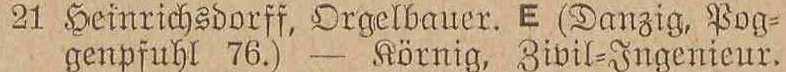 21 Heinrichsdorff, Orgelbauer. E (Danzig, Pog-
genpfuhl 76.) — Körnig, Zivil-Ingenieur.